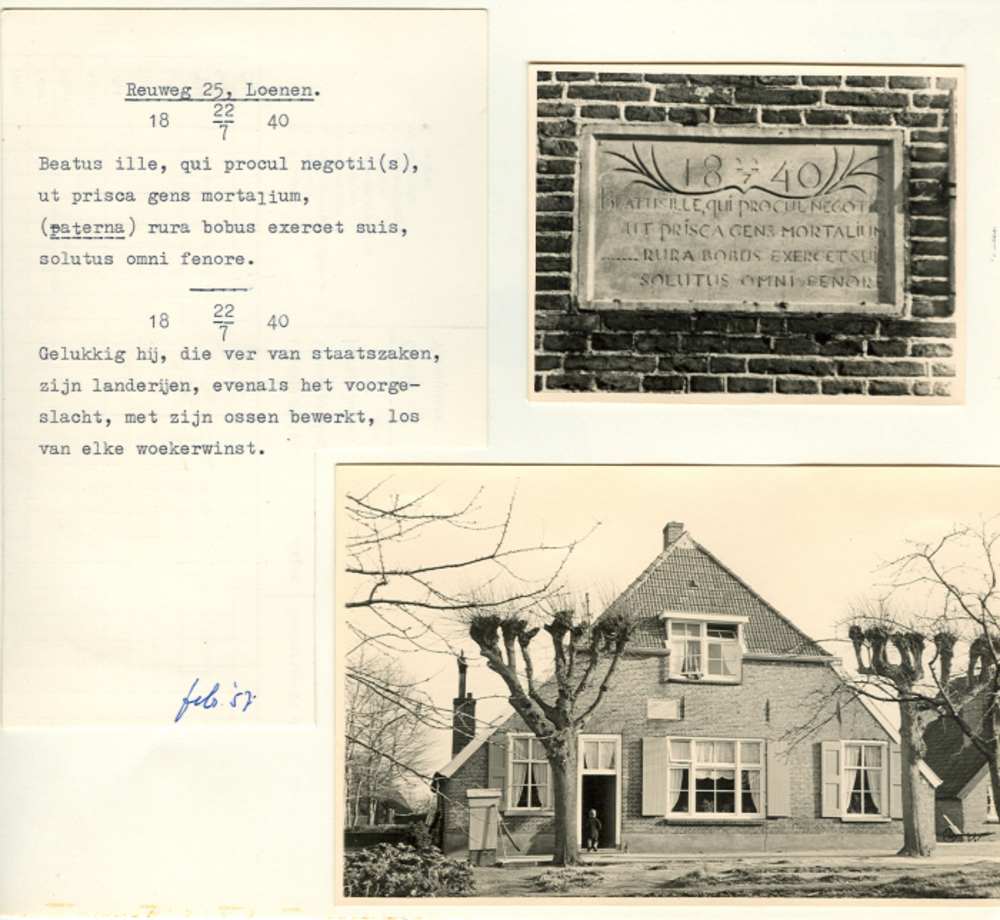 Reuweg 25, Loenen.
18 22/7 40
Beatus ille, qui procul negotii(s),
ut prisca gens mortalium,
(paterna) rura bobus exercet suis,
solutus omni fenore.
18 22/7 40
Gelukkig hij, die ver van staatszaken,
zijn landerijen, evenals het voorge-
slacht, met zijn ossen bewerkt, los
van elke woekerwinst.
feb. '57
18 22/7 40
BEATUS ILLE, QUI PROCUL NEGOTI
UT PRISCA GENS MORTALIUM
........RURA BOBUS EXERCET SUI
SOLUTUS OMNI FENOR